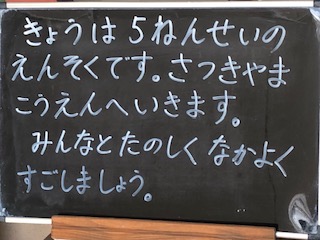 きょうは５ねんせいの
えんそくです。さつきやま
こうえんへいきます。
みんなとたのしくなかよく
すごしましょう。